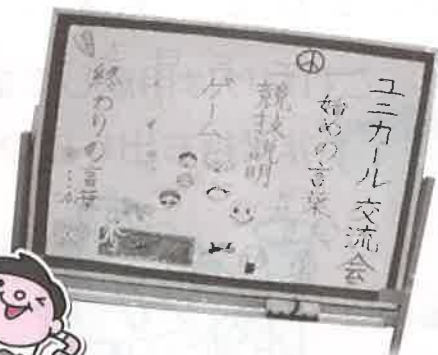 ユニカール交流会
始めの言葉
競技説明
ゲーム
終わりの言葉